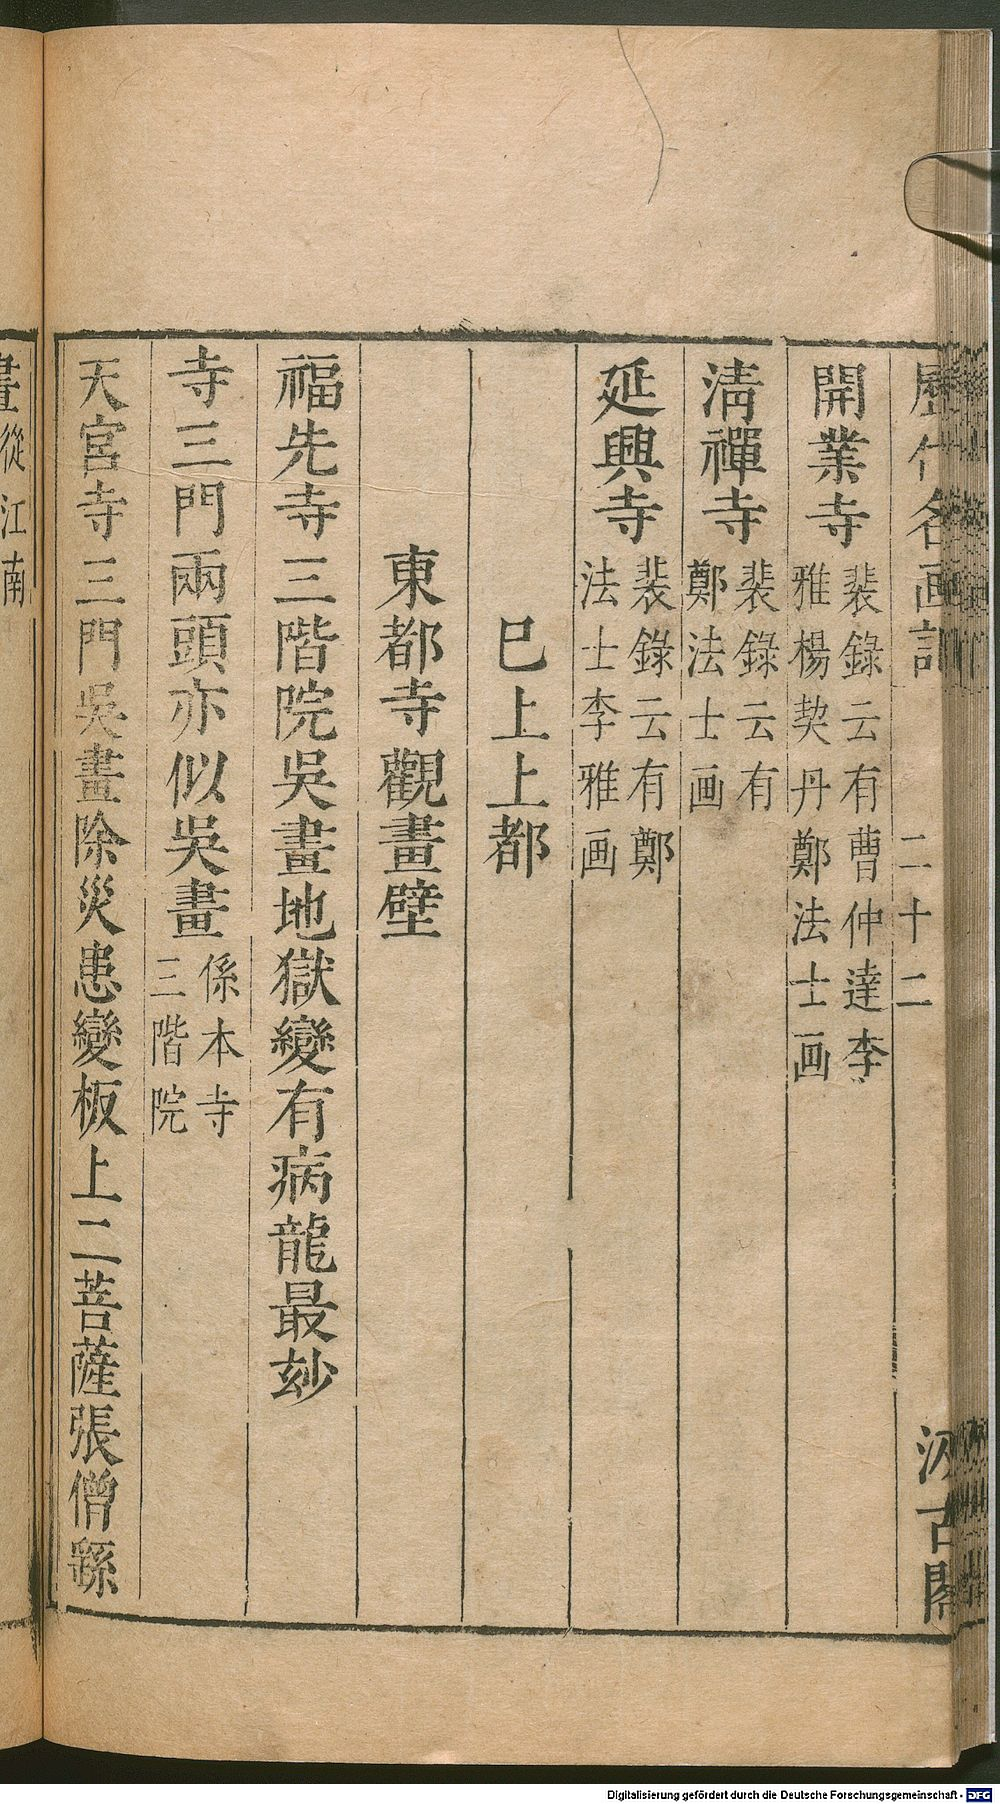 歷代名画記 二十二 汲古閣
開業寺 裴錄云有曹仲達李
雅楊契丹鄭法士画
淸禪寺 裴錄云有
鄭法士画
延興寺 裴錄云有鄭
法士李雅画
巳上上都
東都寺觀畫壁
福先寺三階院吳畫地獄變有病龍最玅
寺三門兩頭亦似吳畫 係本寺
三階院
天宮寺三門吳畫除災患變板上二菩薩張僧繇
畫從江南
Digitalisierung gefördert durch die Deutsche Forschungsgemeinschaft - DFG